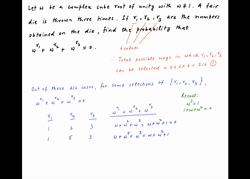 Let ω be a complex cube root of unity with ω≠1. A fair
die is thrown three times. If r₁, r₂, r₃ are the numbers
obtained on the die, find the probability that
ω^r₁ + ω^r₂ + ω^r₃ = 0.
∴ Total possible ways in which r₁, r₂, r₃
can be selected = 6×6×6 = 216 ①
Out of these 216 cases, for some selections of {r₁, r₂, r₃},
ω^r₁ + ω^r₂ + ω^r₃ = 0
Recall:
ω³=1
1+ω+ω² = 0
r₁ r₂ r₃ ω^r₁ + ω^r₂ + ω^r₃
1 2 3 ω+ω²+ω³ = ω+ω²+1=0
1 5 3